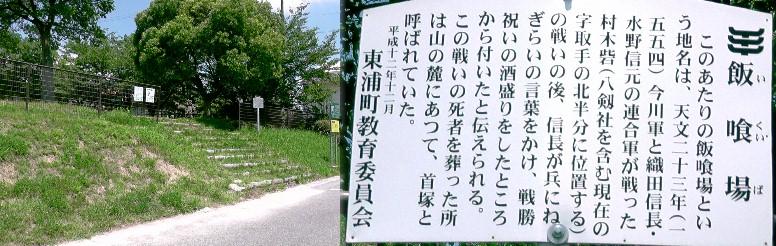 飯喰場
いくいば
このあたりの飯喰場とい
う地名は、天文二十三年（一
五五四）今川軍と織田信長・
水野信元の連合軍が戦った
村木砦（八剱社を含む現在の
字取手の北半分に位置する）
の戦いの後、信長が兵にね
ぎらいの言葉をかけ、戦勝
祝いの酒盛りをしたところ
から付いたと伝えられる。
この戦いの死者を葬った所
は山の麓にあつて、首塚と
呼ばれていた。
平成十二年十二月
東浦町教育委員会